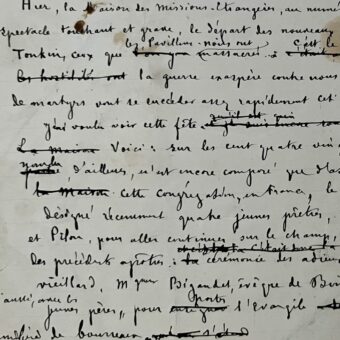 Hier, la Maison des Missions-Étrangères, au numé
spectacle touchant et grave, le départ des nouveaux
les Pavillons-noirs ont C'est le
Tonkin, ceux que massacrés
les hostilités ont la guerre exaspère contre nous
de martyrs vont se succéder assez rapidement cet
J'ai voulu voir cette fête
La Maison Voici : sur les cent quatre vin
d'ailleurs, n'est encore composé que d'as
la Maison. Cette Congrégation, en France, le
désigné récemment quatre jeunes prêtres,
et Pilon, pour aller continuer, sur le champ,
des précédents apôtres : la cérémonie des adieu
vieillard, Mgr Bigandet, évêque de Bir
aussi, avec les porter
jeunes pères, pour l'Evangile
de bourreaux